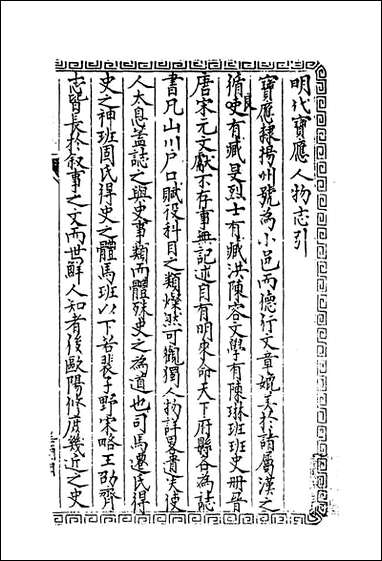 明代寶應人物志引
寶應隸揚州號為小邑而德行文章媲美於諸屬漢之
循吏有臧旻烈士有臧洪陳容文學有陳琳班班史冊晉
唐宋元文獻不存事無記述自有明來命天下府縣各為誌
書凡山川戶口賦役科目之類燦然可觀獨人物詳畧遺失使
人太息蓋誌之與史事類而體殊史之為道也司馬遷氏得
史之神班固氏得史之體馬班以下若裴子野宋略王劭齊
志皆長於敘事之文而世鮮人知者後歐陽修庶幾近之史